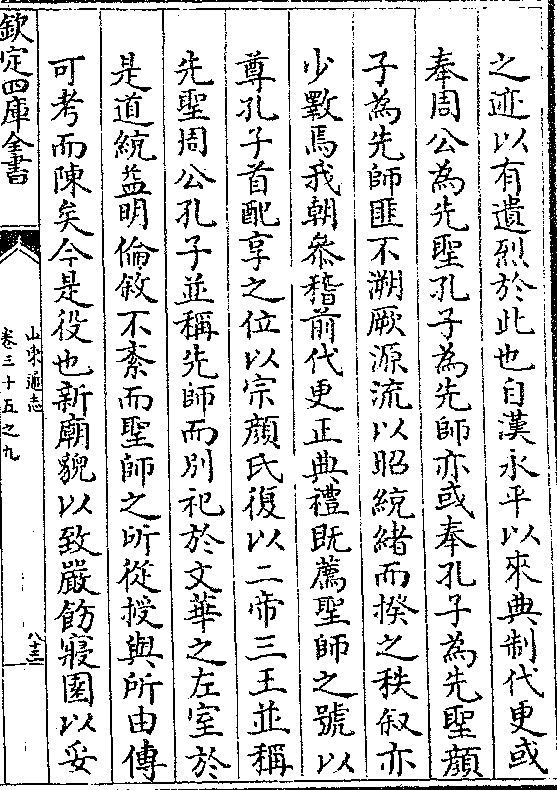 之迹以有遺烈於此也自漢永平以來典制代更或
奉周公為先聖孔子為先師亦或奉孔子為先聖顔
子為先師匪不溯厥源流以昭統緒而揆之秩叙亦
少斁焉我朝叅稽前代更正典禮既薦聖師之號以
尊孔子首配享之位以宗顔氏復以二帝三王並稱
先聖周公孔子並稱先師而别祀於文華之左室於
是道統益明倫敘不紊而聖師之所從授與所由傳
可考而陳矣今是役也新廟貌以致嚴飭寢園以妥
欽定四庫全書
山東通志
卷三十五之九
八十三